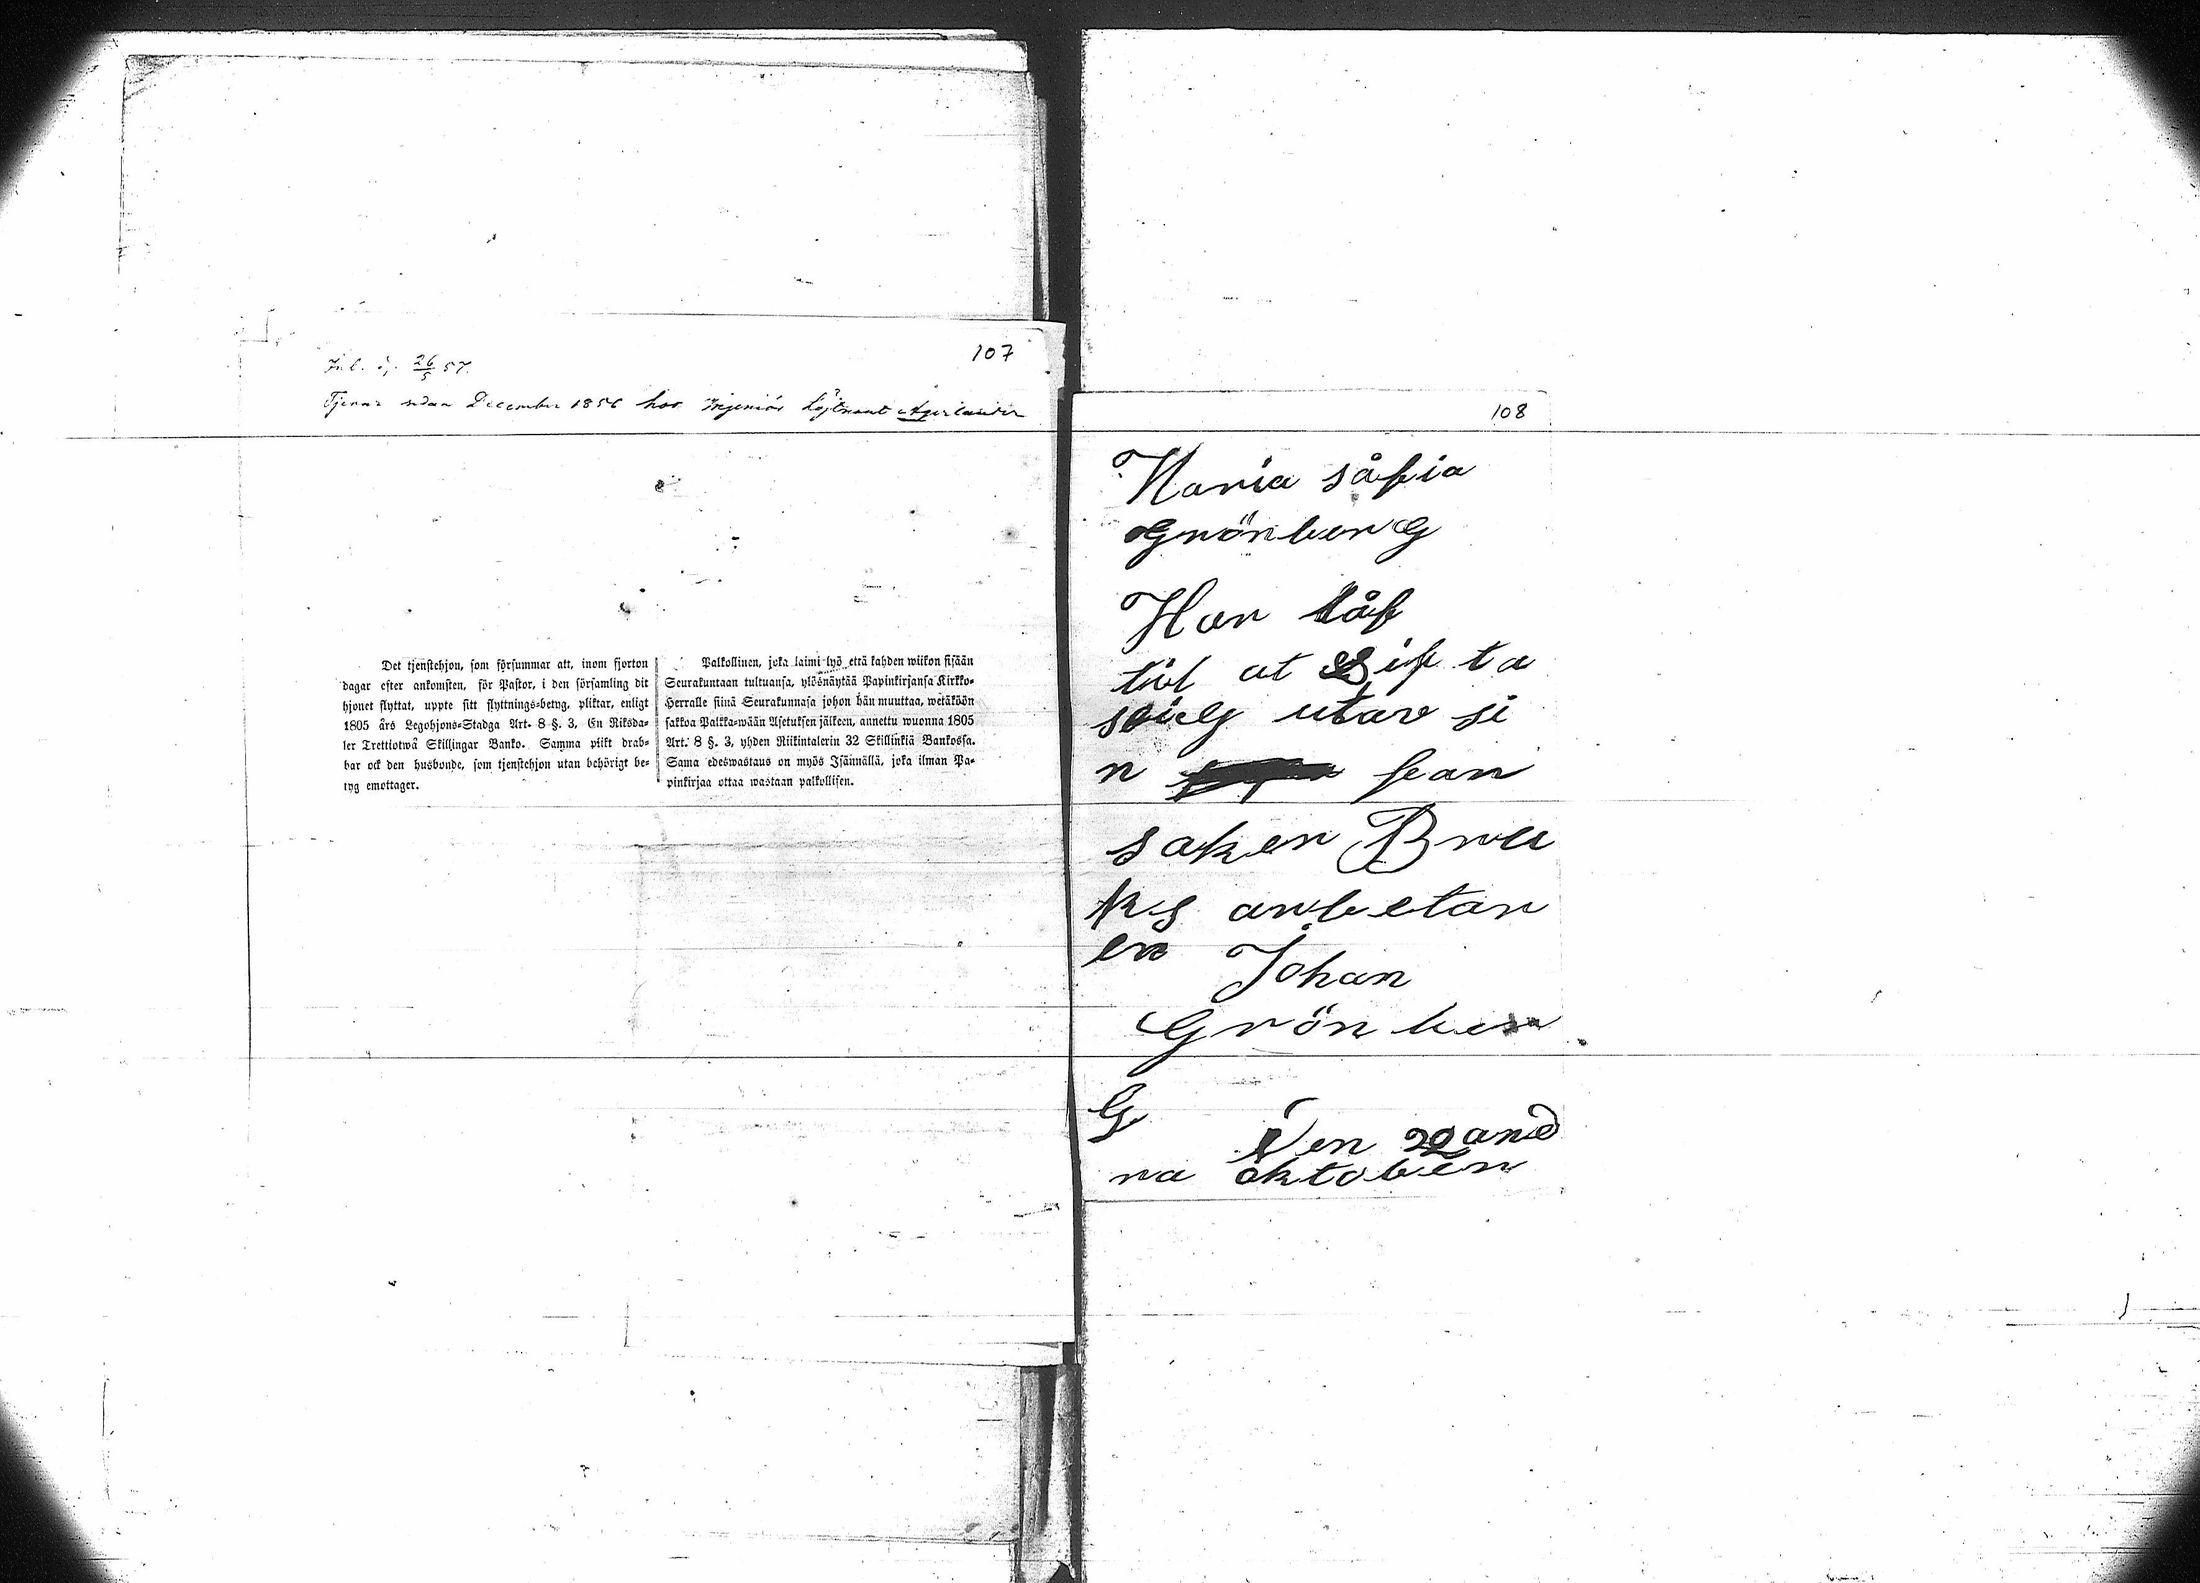 107
Inl. d. 26/5 57.
Tjenar sedan December 1856 hos Ingeniör Löjtnant Agerlander
Det tjenstehjon, som försummar att, inom fjorton
dagar efter ankomsten, för Pastor, i den församling dit
hjonet flyttat, uppte sitt flyttnings-betyg, pliktar, enligt
1805 års Legohjons-Stadga Art. 8 §. 3, En Riksda-
ler Trettiotwå Skillingar Banko. Samma plikt drab-
bar ock den husbonde, som tjenstehjon utan behörigt be-
tyg emottager.
Palkollinen, joka laimi lyö että kahden wiikon sisään
Seurakuntaan tultuansa, ylösnäytää Papinkirjansa Kirkko-
Herralle siinä Seurakunnasa johon hän muuttaa, wetäköön
sakkoa Palkka-wään Asetuksen jälkeen, annettu wuonna 1805
Art. 8 §. 3, yhden Riikintalerin 32 Skillinkiä Bankossa.
Sama edeswastaus on myös Isännällä, joka ilman Pa-
pinkirjaa ottaa wastaan palkollisen.
108
Maria såfia
Grönber G
Har låf
til at Gif ta
siG utav si
n fan
saker Bru
ks arbetar
en Johan
Grön ber
G
Den 22 and
ra oktober